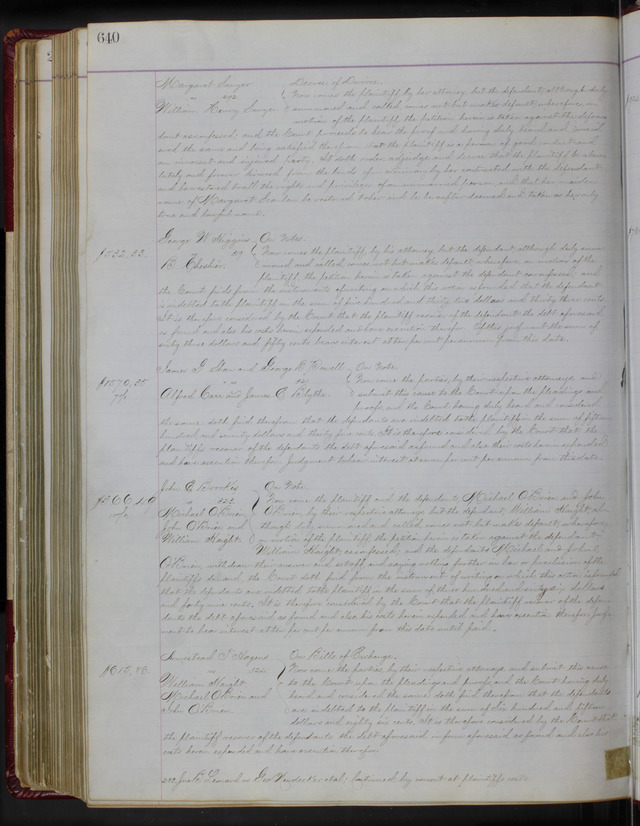 640
Margaret Sawyer Decree of Divorce.
Now comes the plaintiff by her attorney but the defendant although duly
William Henry Sawyer summoned and called comes not but makes default, wherefore, on
motion of the plaintiff the petition herein is taken against the defen-
dant as confessed; and the Court proceeds to hear the proof and having duly heard and
and the same and being satisfied therefrom that the plaintiff is a person of good and
an innocent and injured party. It doth order adjudge and decree that the plaintiff be abso-
lutely and forever divorced from the bonds of matrimony by her contracted with the defendant
and be restored to all the rights and privileges of an unmarried person, and that her maiden
name of Margaret be restored to her and to be kept and taken as her only
true and lawful name.
George W Higgins On Notes.
$532,33. Now comes the plaintiff by his attorney, but the defendant although duly summ-
B Cheshire. oned and called comes not but makes default; wherefore, on motion of the
plaintiff, the petition herein is taken against the defendant as confessed; and
the Court finds from the instruments of writing on which this action is founded that the defendant
is indebted to the plaintiff in the sum of five hundred and thirty two dollars and thirty three cents.
It is therefore considered by the Court that the plaintiff recover of the defendant the debt aforesaid
so found and also his costs herein expended and have execution therefor.
sixty three dollars and fifty cents bears interest at ten per cent per annum from this date.
James and George R. Powell On Note.
$1570,35 Now come the parties, by their respective attorneys and
Alfred Carr and James C Blythe. submit this cause to the Court upon the pleadings and
proofs, and the Court having duly heard and considered
the same doth find therefrom that the defendants are indebted to the plaintiffs in the sum of fifteen
hundred and seventy dollars and thirty five cents. It is therefore considered by the Court that the
plaintiffs recover of the defendants the debt aforesaid as found and also their costs herein expended
and have execution therefor. Judgment to bear interest at seven per cent per annum from this date.
John Brookes On Note.
Now come the plaintiff and the defendants Michael O'Brien and John
Michael O'Brien O'Brien by their respective attorneys but the defendant William Haight al-
John O'Brien and though duly summoned and called comes not but makes default; wherefore,
William Haight. on motion of the plaintiff the petition herein is taken against the defendant
William Haight, as confessed; and the defendants Michael and John
O'Brien, withdraw their answer and set off and saying nothing further in bar or preclusion of the
plaintiffs demand the Court doth find from the instrument of writing on which this action is founded
that the defendants are indebted to the plaintiff in the sum of three hundred and sixty six dollars
and forty nine cents. It is therefore considered by the Court that the plaintiff recover of the defen-
dants the debt aforesaid so found and also his costs herein expended and have execution therefor, judg-
ment to bear interest at ten per cent per annum from this date until paid.
On Bills of Exchange.
$615,86. Now come the parties by their respective attorneys and submit this cause
William Haight to the Court upon the pleadings and proofs, and the Court having duly
Michael O'Brien and heard and considered the same doth find therefrom that the defendants
John O'Brien. are indebted to the plaintiff in the sum of Six hundred and fifteen
dollars and eighty six cents. It is therefore considered by the Court that
the plaintiff recover of the defendants the debt aforesaid in form aforesaid so found and also his
costs herein expended and have execution therefor.
Leonard vs Geo et al; Continued by consent at plaintiffs costs.